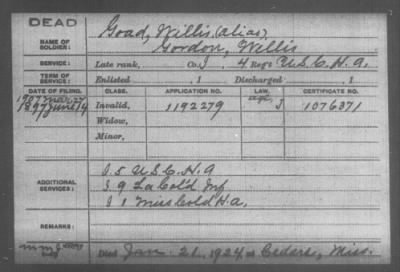 DEAD
NAME OF SOLDIER: Goad, Willis, (alias)
Gordon, Willis
SERVICE: Late rank, Co. I, 4 Reg't U.S.C.H.A.
TERM OF SERVICE: Enlisted , 1 Discharged , 1
DATE OF FILING. CLASS. APPLICATION NO. LAW. CERTIFICATE NO.
1907 Mar. 27 age,
1897 June 14 Invalid, 1192279 J 1076371
Widow,
Minor,
ADDITIONAL SERVICES: I 5 U.S.C.H.A
I 9 La Col'd Inf
I 1 Miss Col'd H.A.
REMARKS:
Died Jan. 21, 1924 at Cedars, Miss.